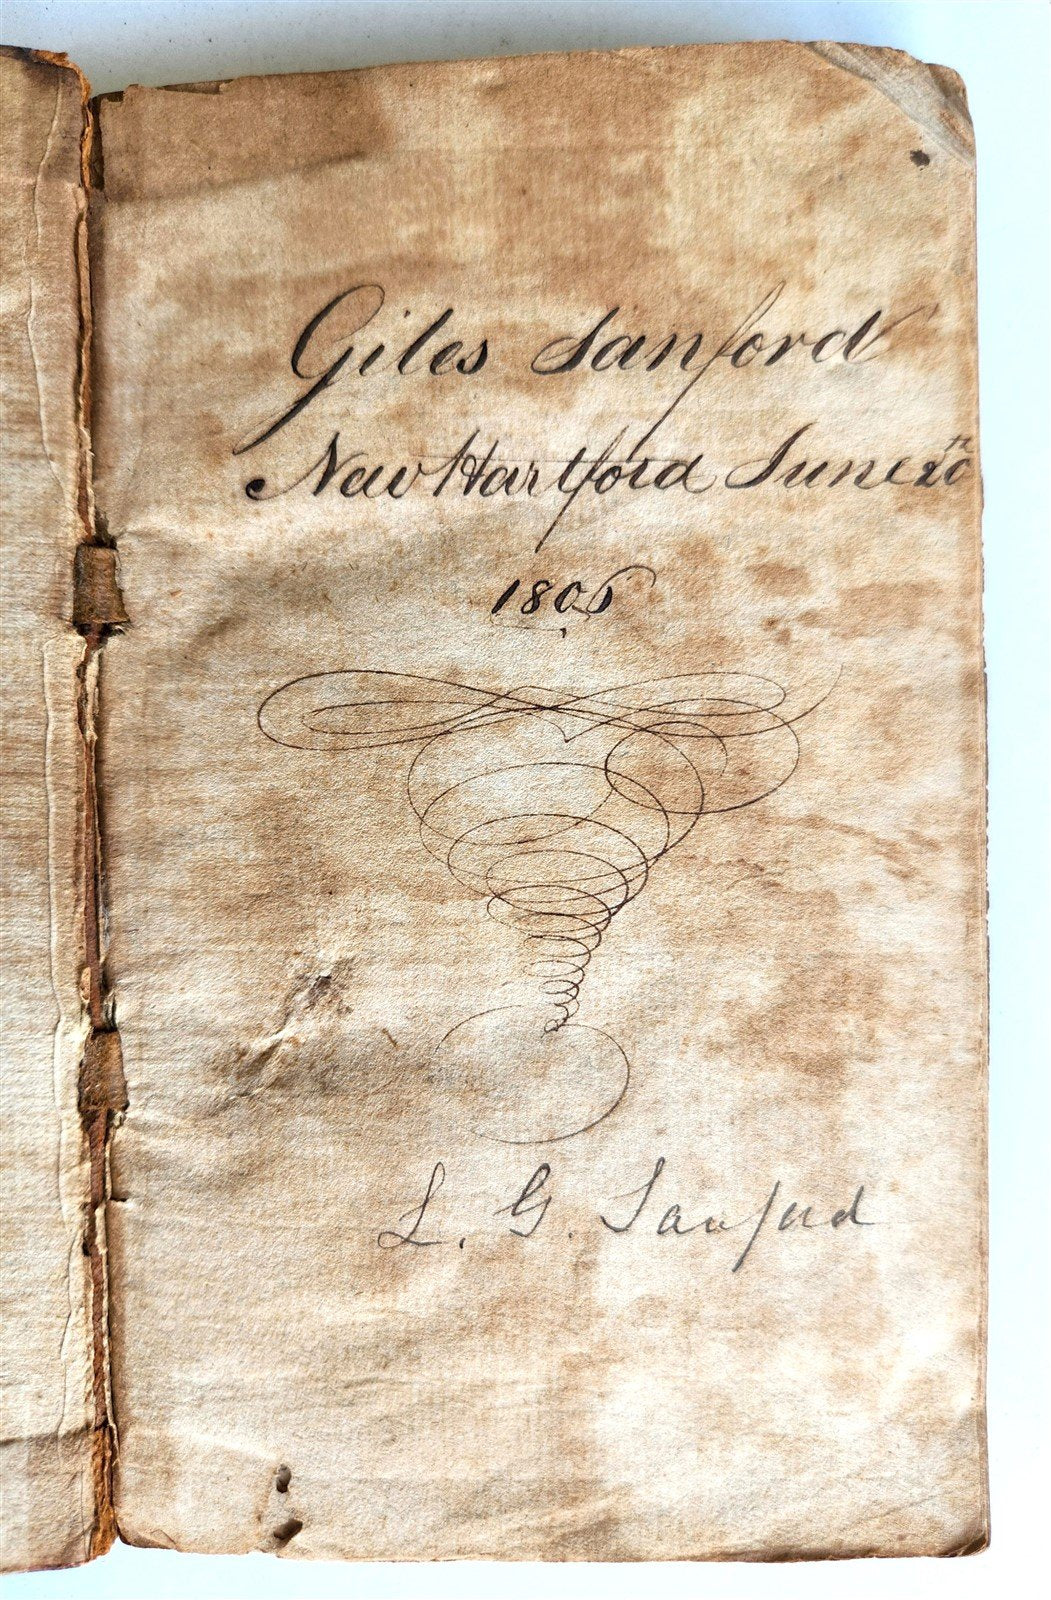 Giles Sanford
New Hartford June 20th
1806
L. G. Sanford